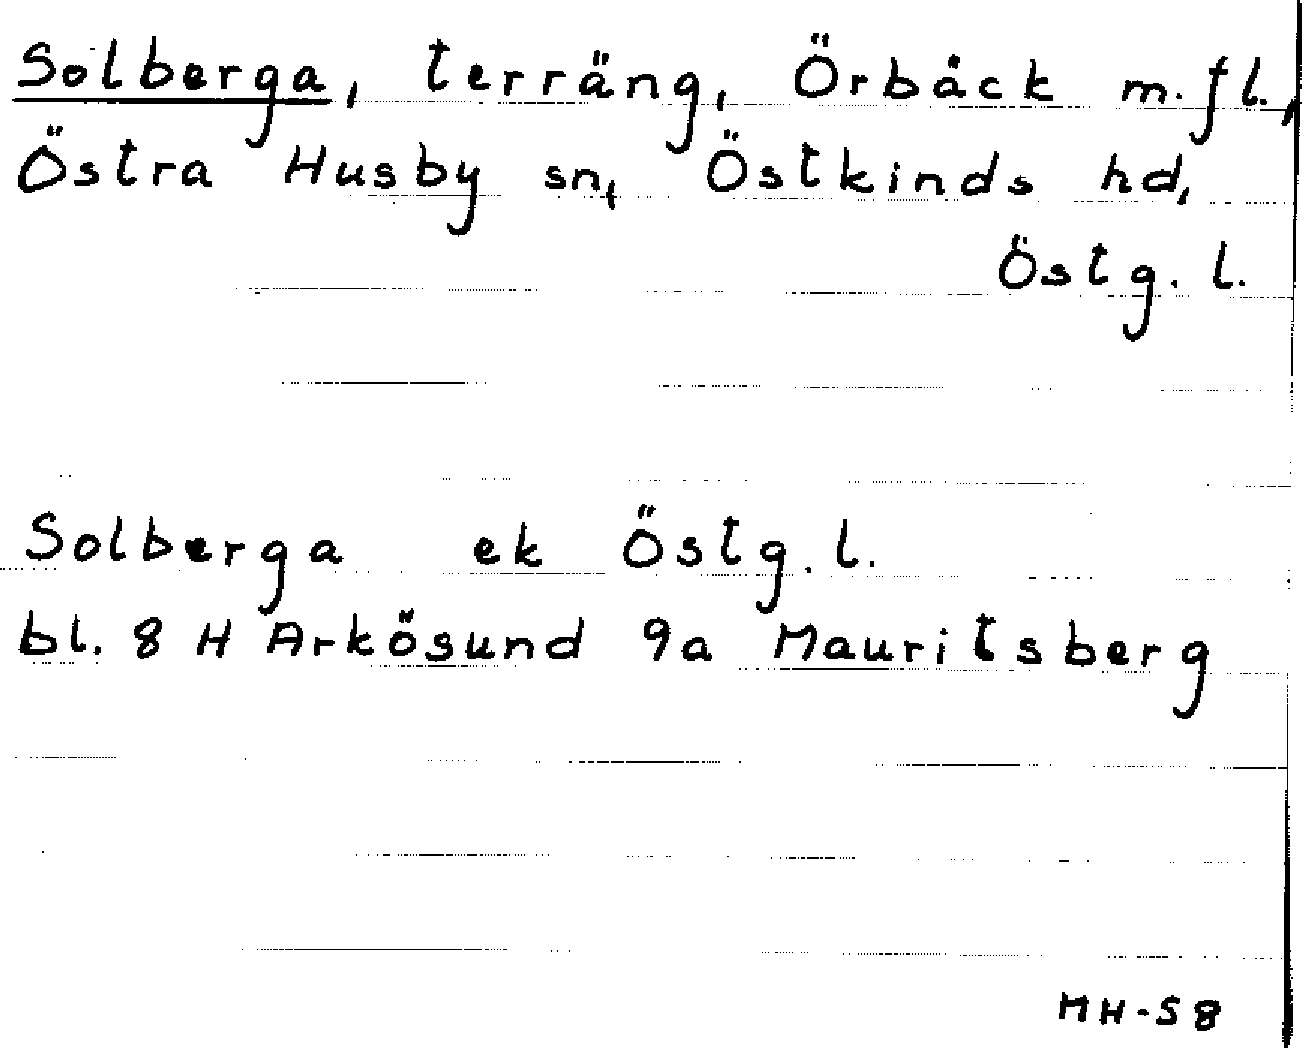 Solberga, terräng, Örbäck m.fl.,
Östra Husby sn, Östkinds hd,
Östg. l.
Solberga ek Östg. l.
bl. 8 H Arkösund 9a Mauritsberg
MH-58